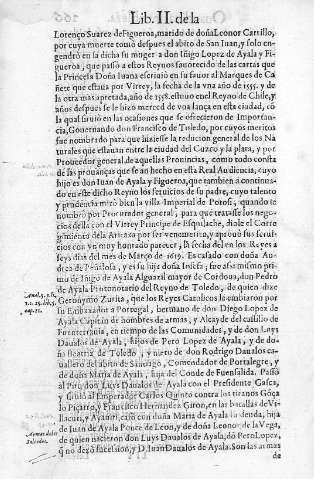 Lib. II. de la
Lorenço Suarez de Figueroa, marido de doña Leonor Carrillo,
por cuya muerte tomò despues el abito de San Iuan, y solo en-
gendrò en la dicha su muger a don Iñigo Lopez de Ayala y Fi-
gueroa, que passò a estos Reynos favorecido de las cartas que
la Princesa Doña Iuana escriviò en su favor al Marques de Ca
ñete que estava por Virrey, la fecha de la vna año de 1555. y de
la otra mas apretada, año de 1558. estuvo en el Reyno de Chile, y
años despues se le hizo merced de vna lança en esta ciudad, cõ
la qual sirviò en las ocasiones que se ofrecieron de importan-
cia, Governando don Francisco de Toledo, por cuyos meritos
fue nombrado para que hiziesse la reducion general de los Na
turales que estavan entre la ciudad del Cuzco y la plata, y por
Proveedor general de aquellas Provincias, como todo consta
de las provanças que se an hecho en esta Real Audiencia, cuyo
hijo es don Iuan de Ayala y Figueroa, que tambien a continua-
do en este dicho Reyno los servicios de su padre, cuyo talento
y prudencia mirò bien la villa Imperial de Potosi, quando le
nombrò por Procurador general, para que tratasse los nego-
cios della con el Virrey Principe de Esquilache, diole el Corre
gimiento de la Aricaza por ser benemerito, y aprovò sus ser
cios con vn muy honrado parecer, la fecha del en los Reyes a
seys dias del mes de Março de 1619. Es casado con doña
de Peñalosa, y es su hija doña Iñesa, fue assi mismo pri-
mo de Iñigo de Ayala Alguazil mayor de Cordova, don Pedro
de Ayala Protonotario del Reyno de Toledo, de quien dize
Geronymo Zurita, que los Reyes Catolicos lo embiaron por
su Embaxador a Portugal, hermano de don Diego Lopez de
Ayala Capitan de hombres de armas, y Alcayde del castillo de
Fuenterravia, en tiempo de las Comunidades, y de don Luys
Davalos de Ayala, hijos de Pero Lopez de Ayala, y de do-
ña Beatriz de Toledo, y nieto de don Rodrigo Davalos ca-
vallero del abito de Santiago, Comendador de Portalegre, y
de doña Maria de Ayala, hija del Conde de Fuensalida. Passò
al Piru don Luys Davalos de Ayala con el Presidente Gasca,
y sirviò al Emperador Carlos Quinto contra los tiranos Gõça
lo Piçarro, y Francisco Hernandez Giron, en las batallas de Vi-
llacuri, y casò con doña Maria de Ayala su deuda, hija
de Iuan de Ayala Ponce de Leon, y de doña Leonor de la Vega,
de quien nacieron don Luys Davalos de Ayala, dõ Pero Lopez,
q̃ no dexò sucession, y D. Iuan Davalos de Ayala. Son las armas
de
Armas de los